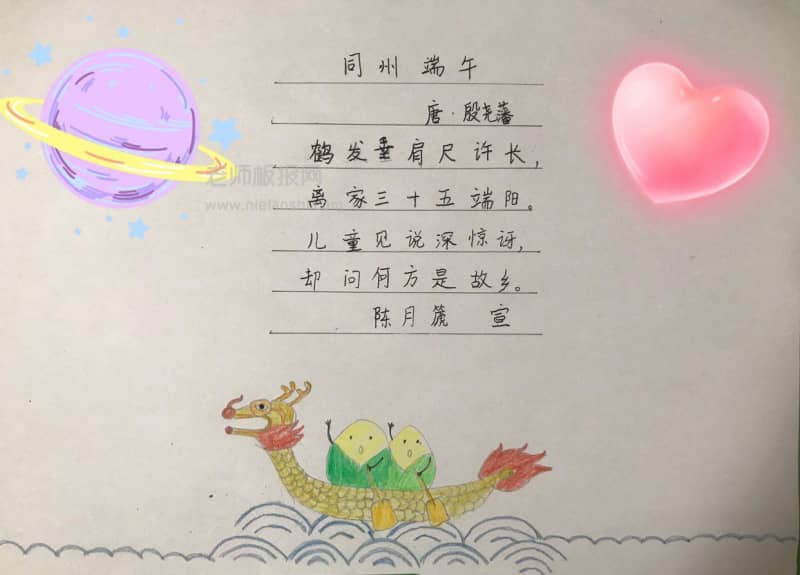 同州端午
唐·殷尧藩
鹤发垂肩尺许长，
离家三十五端阳。
儿童见说深惊讶，
却问何方是故乡。
陈月篪 宣
老师板报网